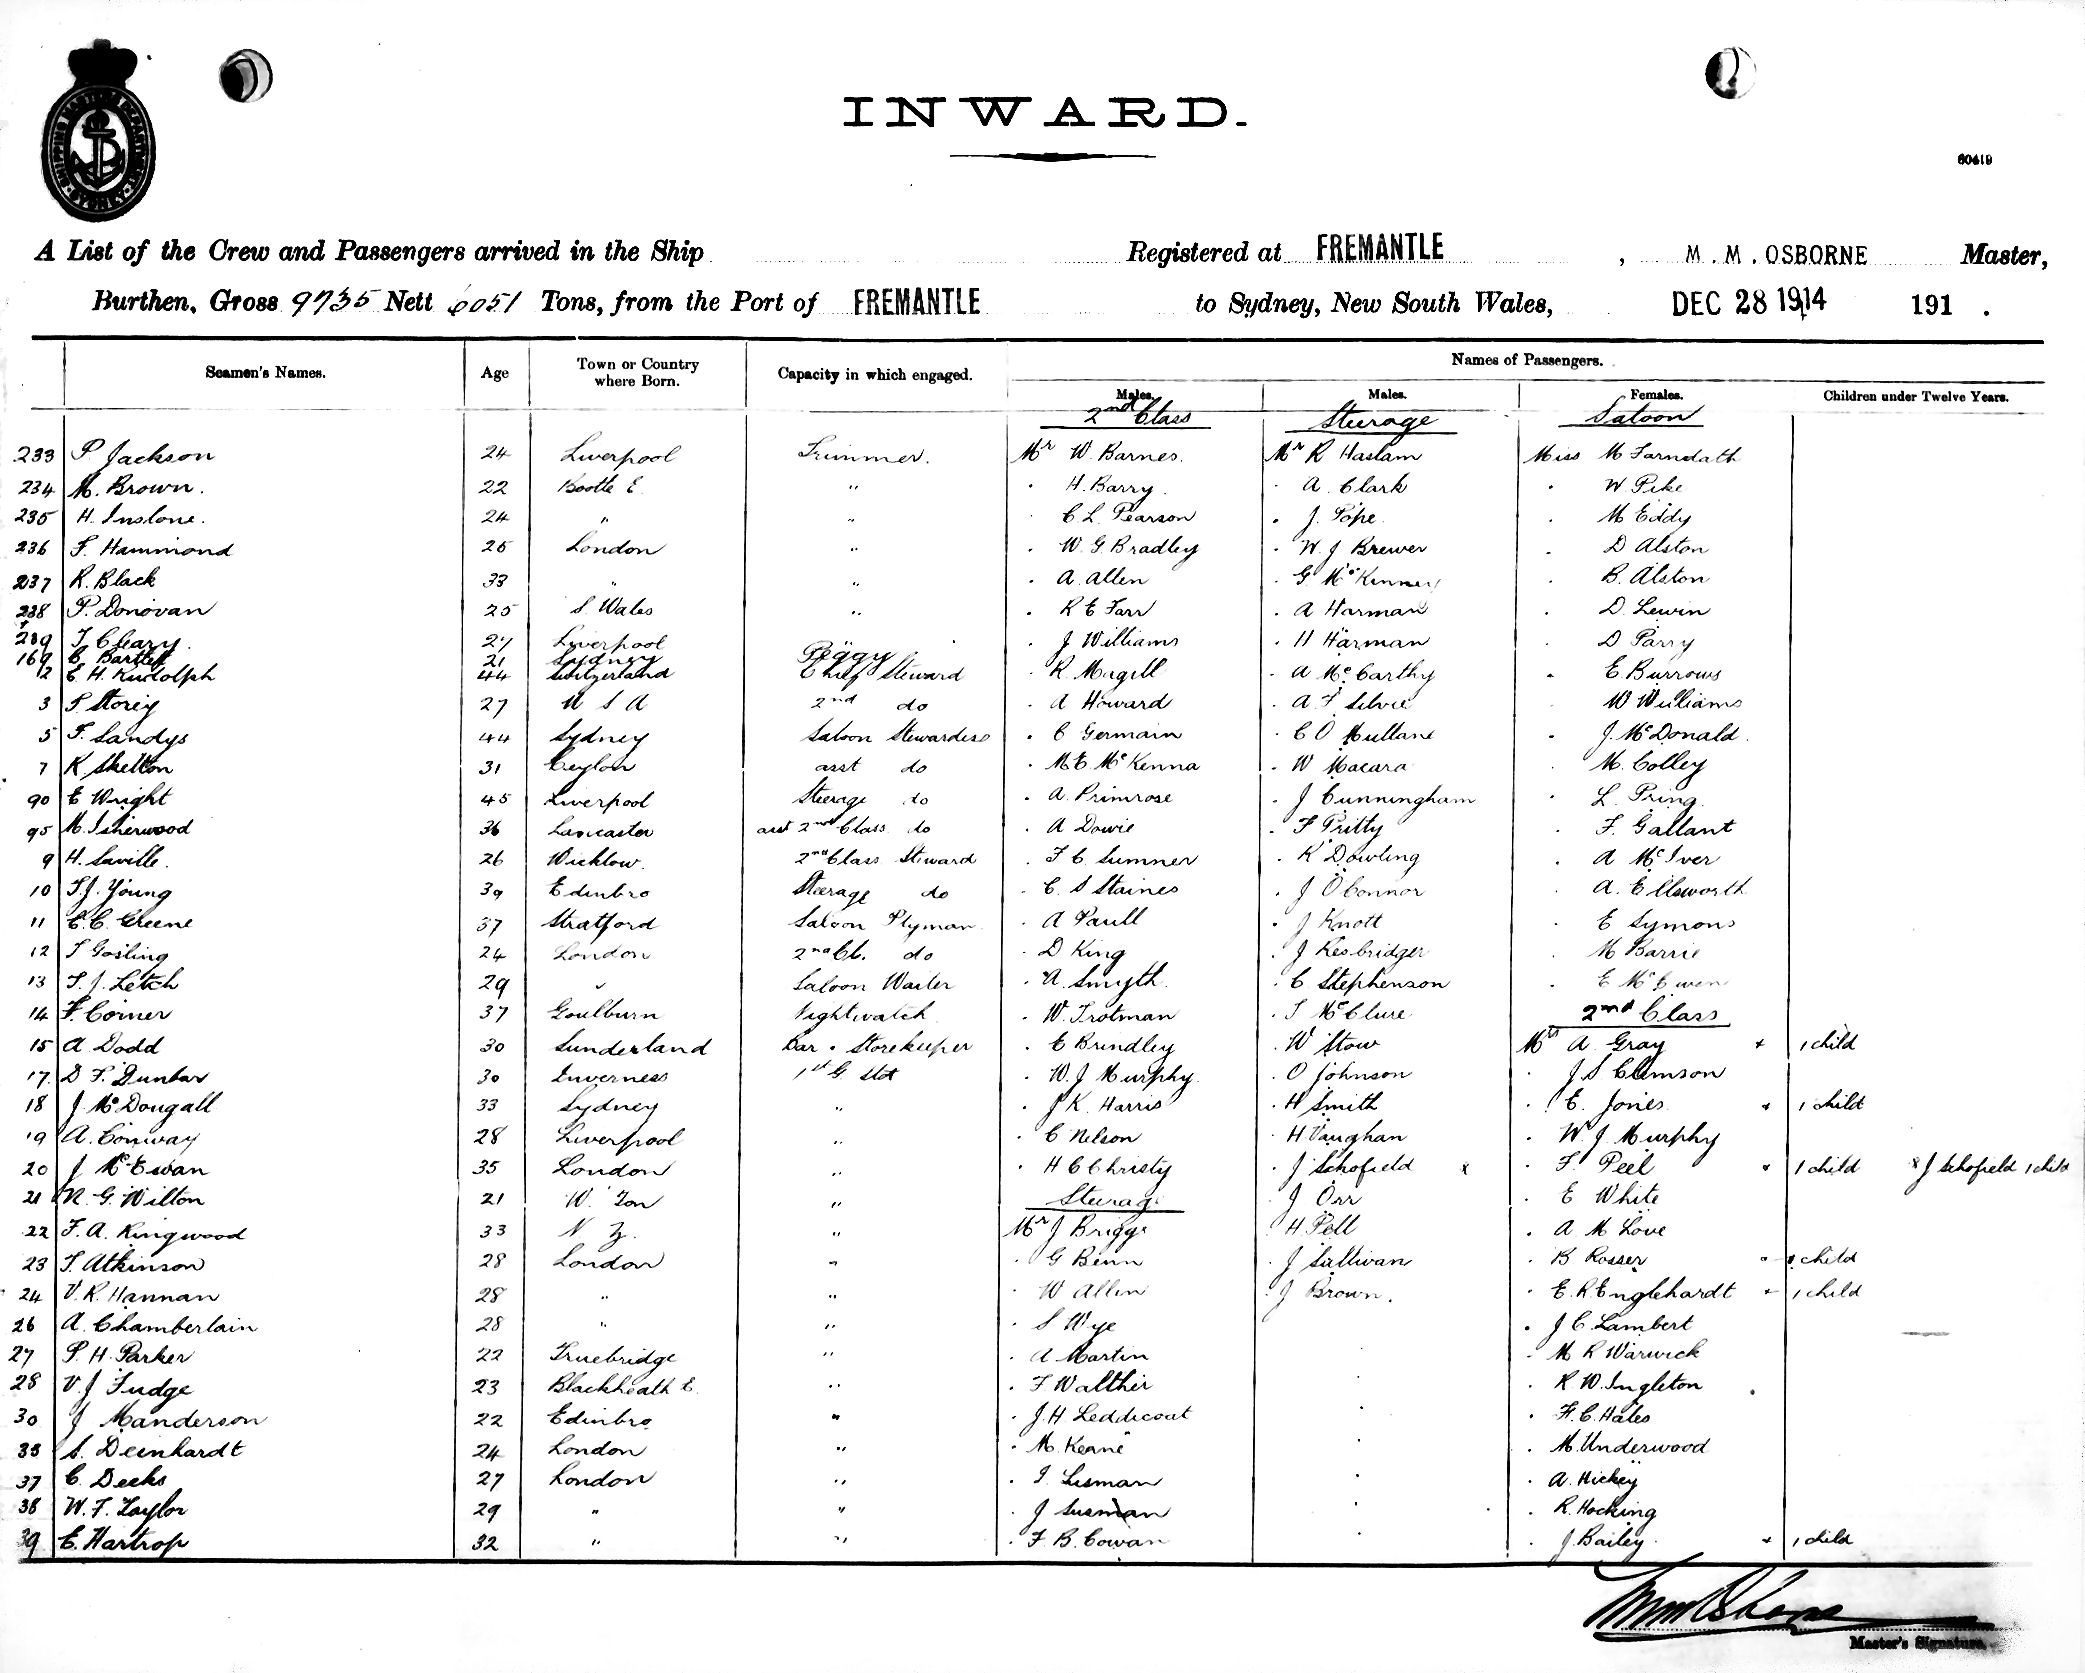 SHIPPING MASTER'S DEPARTMENT SYDNEY
INWARD.
60419
A List of the Crew and Passengers arrived in the Ship Registered at FREMANTLE , M. M. OSBORNE Master,
Burthen, Gross 9735 Nett 6051 Tons, from the Port of FREMANTLE to Sydney, New South Wales, DEC 28 1914 191 .
Seamen's Names. Age Town or Country where Born. Capacity in which engaged. Names of Passengers.
Males. Males. Females. Children under Twelve Years.
2nd Class Steerage Saloon
233 P. Jackson 24 Liverpool Trimmer. Mr W. Barnes. Mr R Haslam Miss M Farndath
234 M. Brown. 22 Bootle E " H. Barry. A. Clark W Pike
235 H. Inslone. 24 " " C. L. Pearson J. Pope M Eddy
236 F. Hammond 25 London " W. G. Bradley W. J Brewer D Alston
237 R. Black 33 " " A. Allen G McKinney B. Alston
238 P. Donovan 25 S Wales " R E Farr A Harman D. Lewin
239 T Cleary. 27 Liverpool J Williams H Harman D Parry
169 C. Bartlett 21 Sydney Peggy
2 E H. Rudolph 44 Switzerland Chief Steward R. Magill A McCarthy E. Burrows
3 S Storey 27 U S A 2nd do A Howard A F Silvie W Williams
5 F. Sandys 44 Sydney Saloon Stewardess C Germain C O Mullane J. McDonald.
7 K Skelton 31 Ceylon asst do M. E. McKenna W Macara M. Colley
90 E Wright 45 Liverpool Steerage do A. Primrose J Cunningham L. Pring.
95 M. Isherwood 36 Lancaster asst 2nd Class do A Dowie F Pritty F. Gallant
9 H. Saville. 26 Wicklow. 2nd Class Steward F. C. Sumner R Dowling A McIver
10 T. J. Young 39 Edinbro Steerage do C. S Staines J OConnor A. Ellsworth
11 C. C. Greene 37 Stratford Saloon Plyman A Paull J Knott E Symons
12 T Gosling 24 London 2nd Cl. do D King J Kesbridger M Barrie
13 T. J. Letch 29 " Saloon Waiter A. Smyth. C Stephenson E McEwen
14 F. Corner 37 Goulburn Nightwatch W. Trotman T McClure 2nd Class
15 A Dodd 30 Sunderland Bar . Storekeeper E Brindley W Stow Mrs A. Gray + 1 child
17. D F. Dunbar 30 Inverness 1st G. Std W. J Murphy. O Johnson J. S Clemson
18 J. McDougall 33 Sydney " J K. Harris H Smith E. Jones + 1 child
19 A. Conway 28 Liverpool " C Nelson H Vaughan W. J Murphy
20 J McEwan 35 London " H C Christy J Schofield x F. Peel + 1 child x J Schofield 1 child
21 R. G. Wilton 21 W. Ton " Steerage J Orr E White
22 F. A. Ringwood 33 N Z. " Mr J Briggs H Pell A M Love
23 T. Atkinson 28 London " G Benn J Sullivan B Rosser + 1 child
24 V. R. Hannan 28 " " W Allen J Brown. E. R Englehardt + 1 child
26 A. Chamberlain 28 " " S Wye J C. Lambert
27 P. H. Parker 22 Truebridge " A Martin M R Warwick
28 V. J Fudge 23 Blackheath E. " F Walther R W. Ingleton
30 J Manderson 22 Edinbro " J. H Leddicoat H. C. Hales
35 S. Deinhardt 24 London " M. Keane M. Underwood
37 C. Deeks 27 London " I. Susman A. Hickey
38 W. F. Taylor 29 " " J Susman R. Hocking
39 E. Hartrop 32 " " F. B. Cowan J. Bailey. + 1 child
Master's Signature.